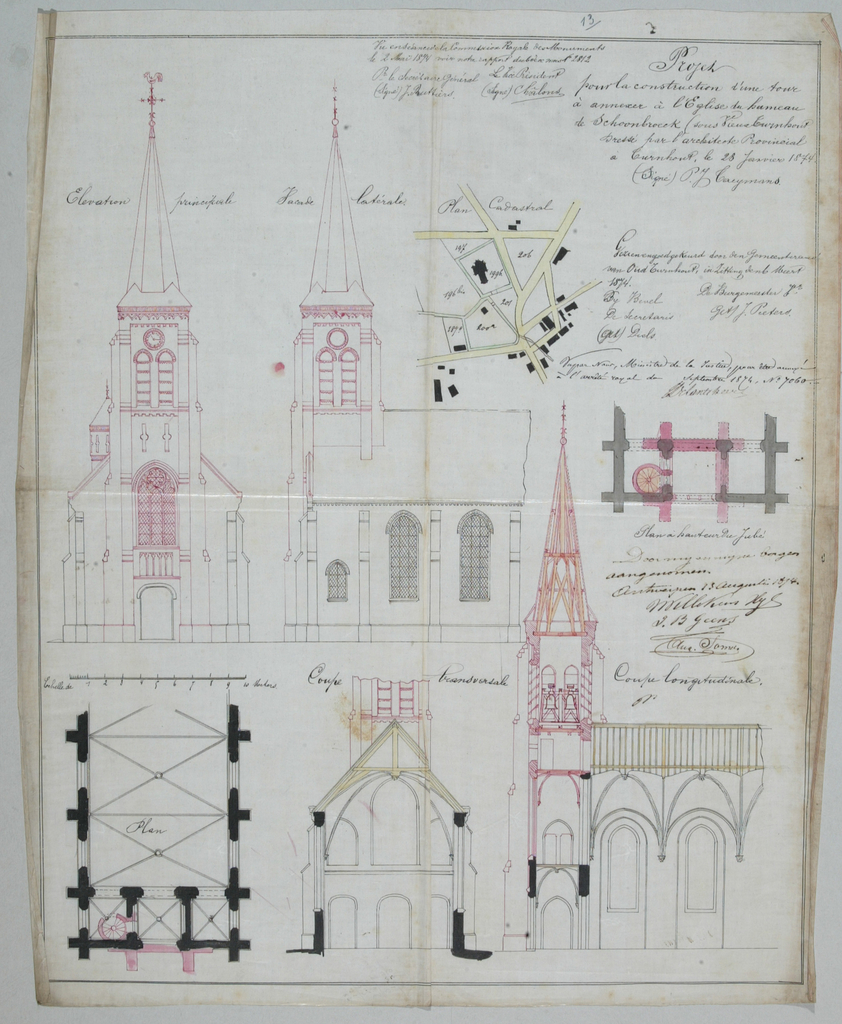 13
Vu en séance de la Commission Royale des Monuments
le 2 Mai 1874 notre rapport du
Pr le Secrétaire Général Le Vice Président
(signé) J. Rutiers (signé)
Projet
pour la construction d'une tour
à annexer à l'Eglise du hameau
de Schoonbroeck (sous Vieux Turnhout
dressé par l'architecte Provincial
a Turnhout, le 28 Janvier 1874
(Signé) P J Taeymans
Elevation principale
Facade latérale
Plan Cadastral
197
206
199b
196b
201
1899
200a
goedgekeurd door den Gemeenteraad
van Oud Turnhout, in Zitting den 6 Meert
1874.
By Bevel De Burgemeester
De Secretaris Get) J. Pieters
(Get)
Vu par Nous, Ministre de la Justice, pour être annexé
à l'arrêté royal du septembre 1874, No 7060
Plan à hauteur du Jubé
Door my
aangenomen.
Antwerpen 13 Augusti 1874.
J. B Geens
Echelle de 1 2 3 4 5 6 7 8 9 10 Mètres
Coupe transversale
Coupe longitudinale.
Plan